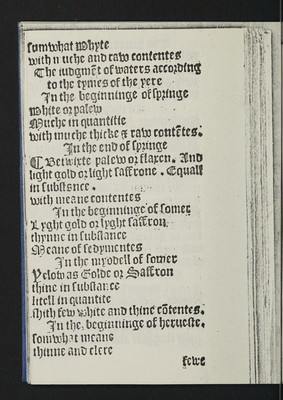 somwhat Whyte
with muche and raw contentes
The iudgmēt of waters according
to the tymes of the yere
In the beginninge of springe
White or palew
Muche in quantitie
with muche thicke & raw contētes.
In the end of springe
¶ Betwixte palew or flaxen. And
light gold or light saffrone. Equall
in substence.
with meane contentes
In the beginninge of somer
Lyght gold or lyght saffron
thynne in substance
Meane of sedymentes
In the myddell of somer
Yelow as Golde or Saffron
thine in substance
litell in quantite
with few white and thine cōtentes.
In the beginninge of herueste.
somwhat means
thinne and clere
fewe